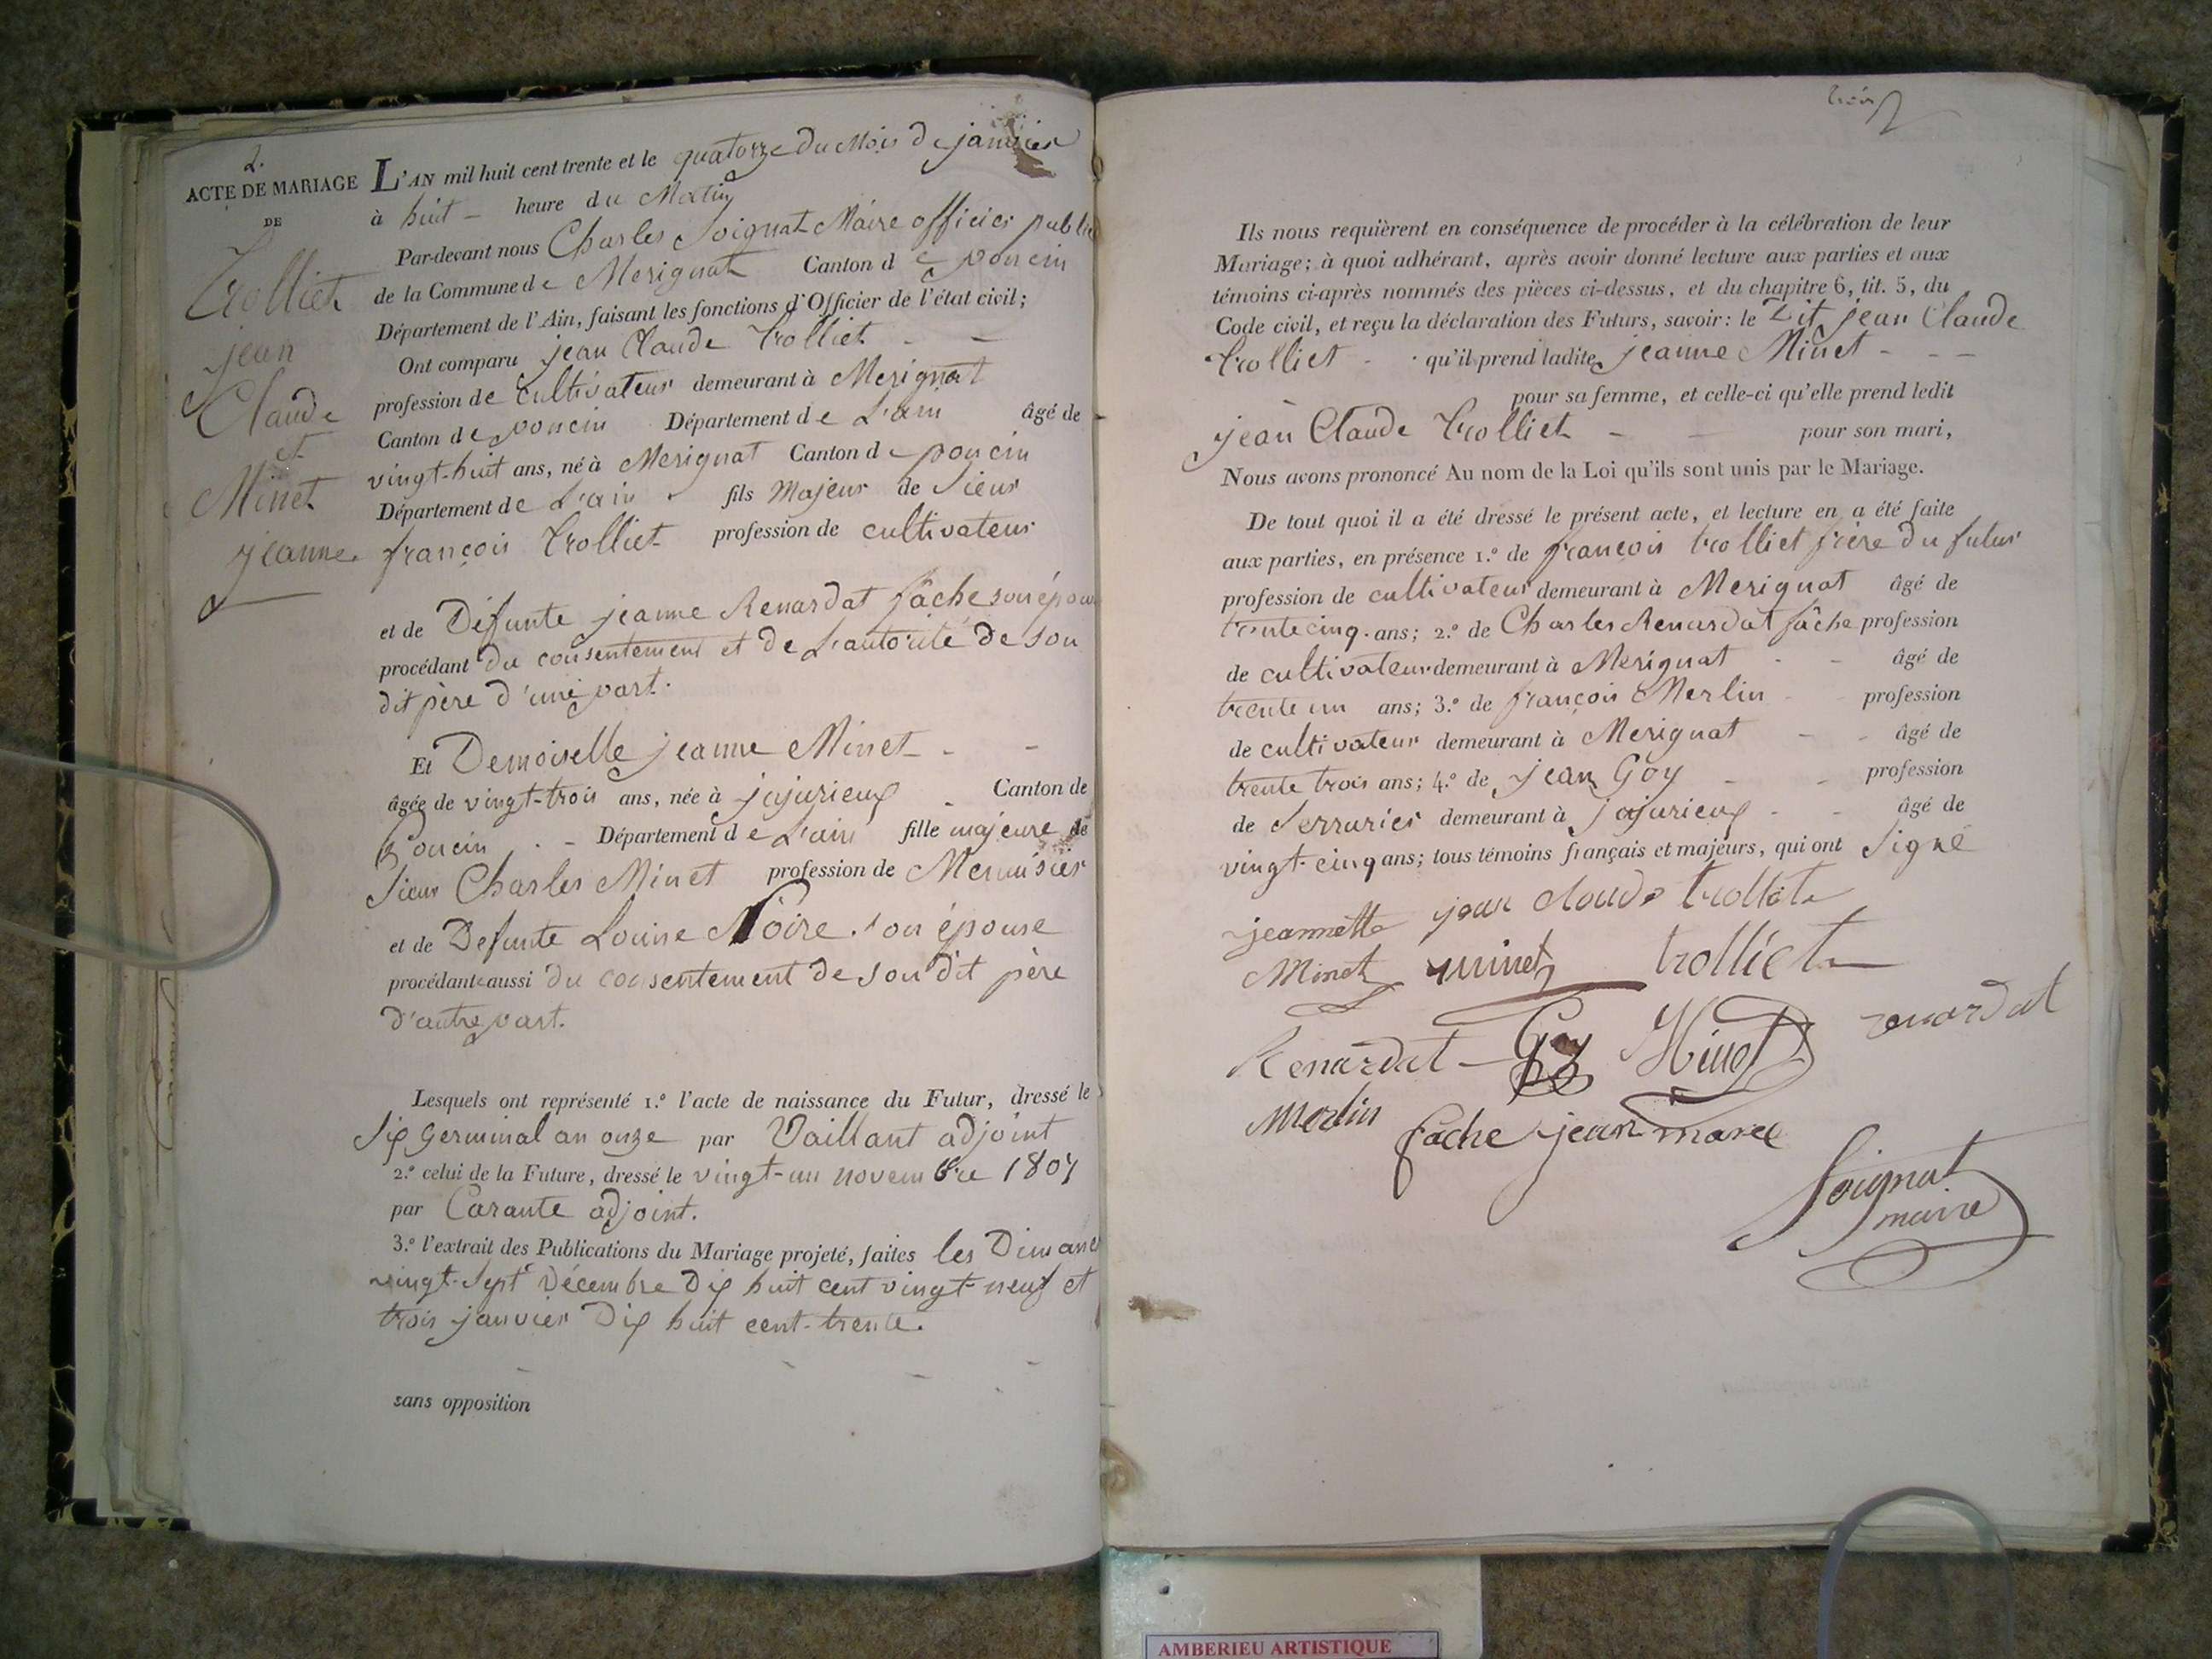 2.
ACTE DE MARIAGE
DE
Trolliet
jean
Claude
et
Minet
jeanne
L'AN mil huit cent trente et le quatorze du Mois de janvier
à huit - heure du Matin
Par-devant nous Charles Soignat Maire officier public
de la Commune de Merignat Canton de poncin
Département de l'Ain, faisant les fonctions d'Officier de l'état civil;
Ont comparu jean Claude Trolliet - -
profession de Cultivateur demeurant à Merignat
Canton de poncin Département de L'ain âgé de
vingt-huit ans, né à Merignat Canton de poncin
Département de L'ain fils Majeur de Sieur
françois Trolliet profession de cultivateur
et de Défunte jeanne Renardat fâche son épouse
procédant du consentement et de L'autorité de son
dit père d'une part.
Et Demoiselle jeanne Minet - -
âgée de vingt-trois ans, née à jujurieux - Canton de
Poncin - Département de L'ain fille majeure de
Sieur Charles Minet profession de Menuisier
et de Defunte Louise Noire son épouse
procédante aussi du consentement de son dit père
d'autre part.
Lesquels ont représenté 1.º l'acte de naissance du Futur, dressé le
Six Germinal an onze par Vaillant adjoint
2.º celui de la Future, dressé le vingt-un novembre 1807
par Carante adjoint.
3.º l'extrait des Publications du Mariage projeté, faites les Dimanc
vingt-Sept Décembre Dix huit cent vingt-neuf et
trois janvier Dix huit cent-trente.
sans opposition
Ils nous requièrent en conséquence de procéder à la célébration de leur
Mariage; à quoi adhérant, après avoir donné lecture aux parties et aux
témoins ci-après nommés des pièces ci-dessus, et du chapitre 6, tit. 5, du
Code civil, et reçu la déclaration des Futurs, savoir: le Dit jean Claude
Trolliet - qu'il prend ladite jeanne Minet - - -
pour sa femme, et celle-ci qu'elle prend ledit
jean Claude Trolliet - - pour son mari,
Nous avons prononcé Au nom de la Loi qu'ils sont unis par le Mariage.
De tout quoi il a été dressé le présent acte, et lecture en a été faite
aux parties, en présence 1.º de françois trolliet frère du futur
profession de cultivateur demeurant à Merignat âgé de
trente cinq ans; 2.º de Charles Renardat fâche profession
de cultivateur demeurant à Merignat - - âgé de
trente un ans; 3.º de françois Merlin - profession
de cultivateur demeurant à Merignat - - âgé de
trente trois ans; 4.º de jean Goy - - profession
de Serrurier demeurant à jujurieux - - âgé de
vingt-cinq ans; tous témoins français et majeurs, qui ont Signé
jeannette jean claude trolliet
Minet minet trolliet
Renardat Goy Minet renardat
Merlin fâche jean marie
Soignat
maire
AMBERIEU ARTISTIQUE